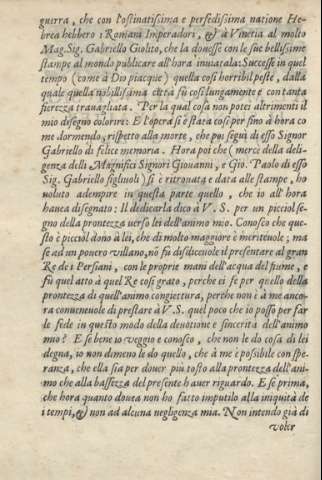 guerra, che con l'ostinatissima e perfedissima natione He-
brea hebbero i Romani Imperadori, & à Vinetia al molto
Mag. Sig. Gabriello Giolito, che la douesse con le sue bellissime
stampe al mondo publicare all'hora inuiatala: Successe in quel
tempo (come à Dio piacque) quella così horribil peste, dalla
quale quella nobilissima città fù così lungamente e con tanta
fierezza trauagliata. Per la qual cosa non potei altrimenti il
mio disegno colorire: E l'opera si è stata così per sino à hora co
me dormendo, rispetto alla morte, che poi seguì di esso Signor
Gabriello di felice memoria. Hora poi che (merce della deli-
genza delli Magnifici Signori Giouanni, e Gio. Paolo di esso
Sig. Gabriello figliuoli) si è ritrouata e data alle stampe, ho
uoluto adempire in questa parte quello, che io all'hora
haueua disegnato: Il dedicarla dico à V. S. per un picciol se-
gno della prontezza uerso lei dell'animo mio. Conosco che que-
sto è picciol dono à lei, che di molto maggiore è meriteuole; ma
se ad un pouero uillano, nō fù disdiceuole il presentare al gran
Re de i Persiani, con le proprie mani dell'acqua del fiume, e
fù quel atto à quel Re così grato, perche ei fe per quello della
prontezza di quell'animo congiettura, perche non è à me anco-
ra conueneuole di prestare à V. S. quel poco che io posso per far
le fede in questo modo della deuotione e sincerità dell'animo
mio? E se bene io veggio e conosco, che non le do cosa di lei
degna, io non dimeno le do quello, che à me è possibile con spe-
ranza, che ella sia per douer più tosto alla prontezza dell'ani-
mo che alla bassezza del presente hauer riguardo. E se prima,
che hora quanto douea non ho fatto imputilo alla iniquità de
i tempi, & non ad alcuna negligenza mia. Non intendo già di
voler